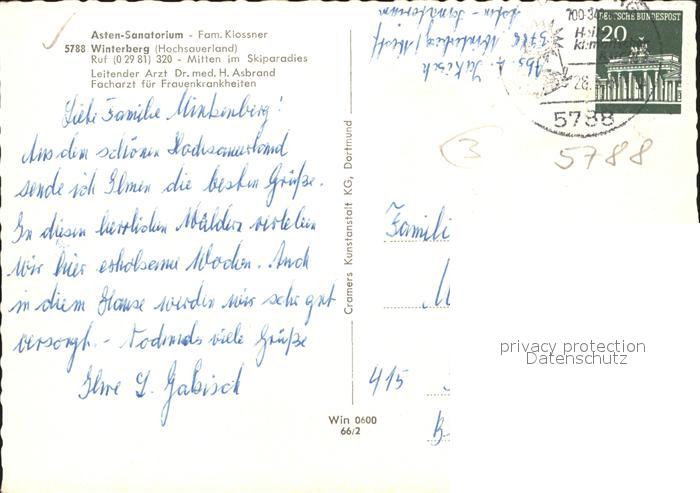 Asten-Sanatorium - Fam. Klossner
5788 Winterberg (Hochsauerland)
Ruf (0 29 81) 320 - Mitten im Skiparadies
Leitender Arzt Dr. med. H. Asbrand
Facharzt für Frauenkrankheiten
Liebe Familie Mintzenberg!
Aus dem schönen Hochsauerland
sende ich Ihnen die besten Grüße.
In diesen herrlichen Wäldern verleben
wir hier erholsame Wochen. Auch
in diesem Hause werden wir sehr gut
versorgt. - Nochmals viele Grüße
Ihre L. Gabisch
Cramers Kunstanstalt KG, Dortmund
Win 0600
66/2
Abs. L.
5788 Winterberg
Asten-Sanatorium
DEUTSCHE BUNDESPOST
20
5788
3
5788
Famili
M
415
privacy protection
Datenschutz